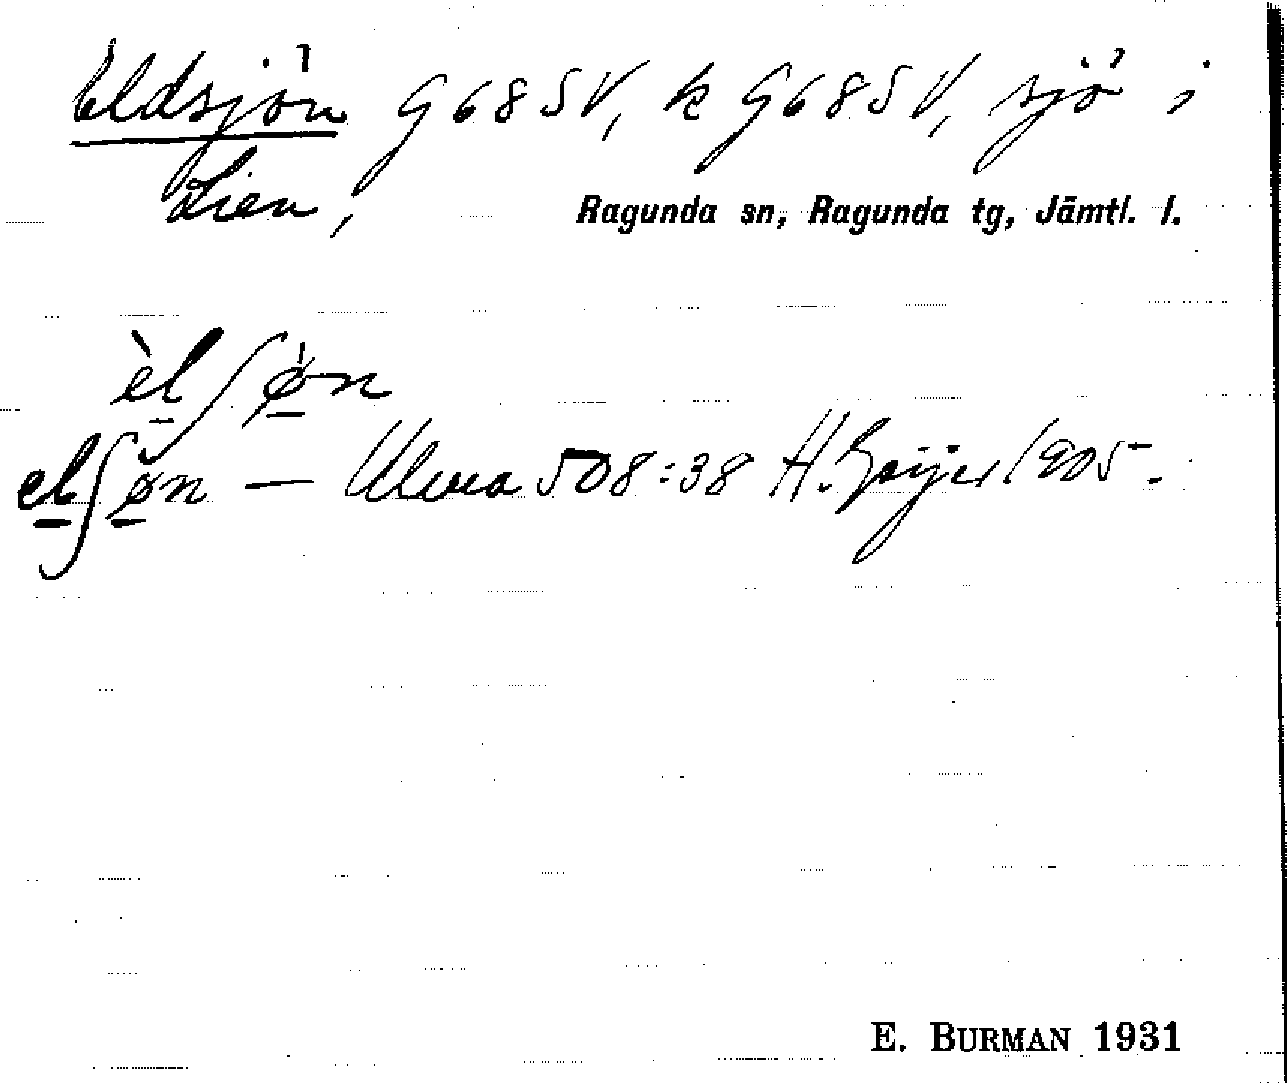 Eldsjön G685V, k G685V, sjö i
Lien,
Ragunda sn, Ragunda tg, Jämtl. l.
èlʃøn
elʃøn — Ulma 508:38 H. Geijer 1905.
E. BURMAN 1931